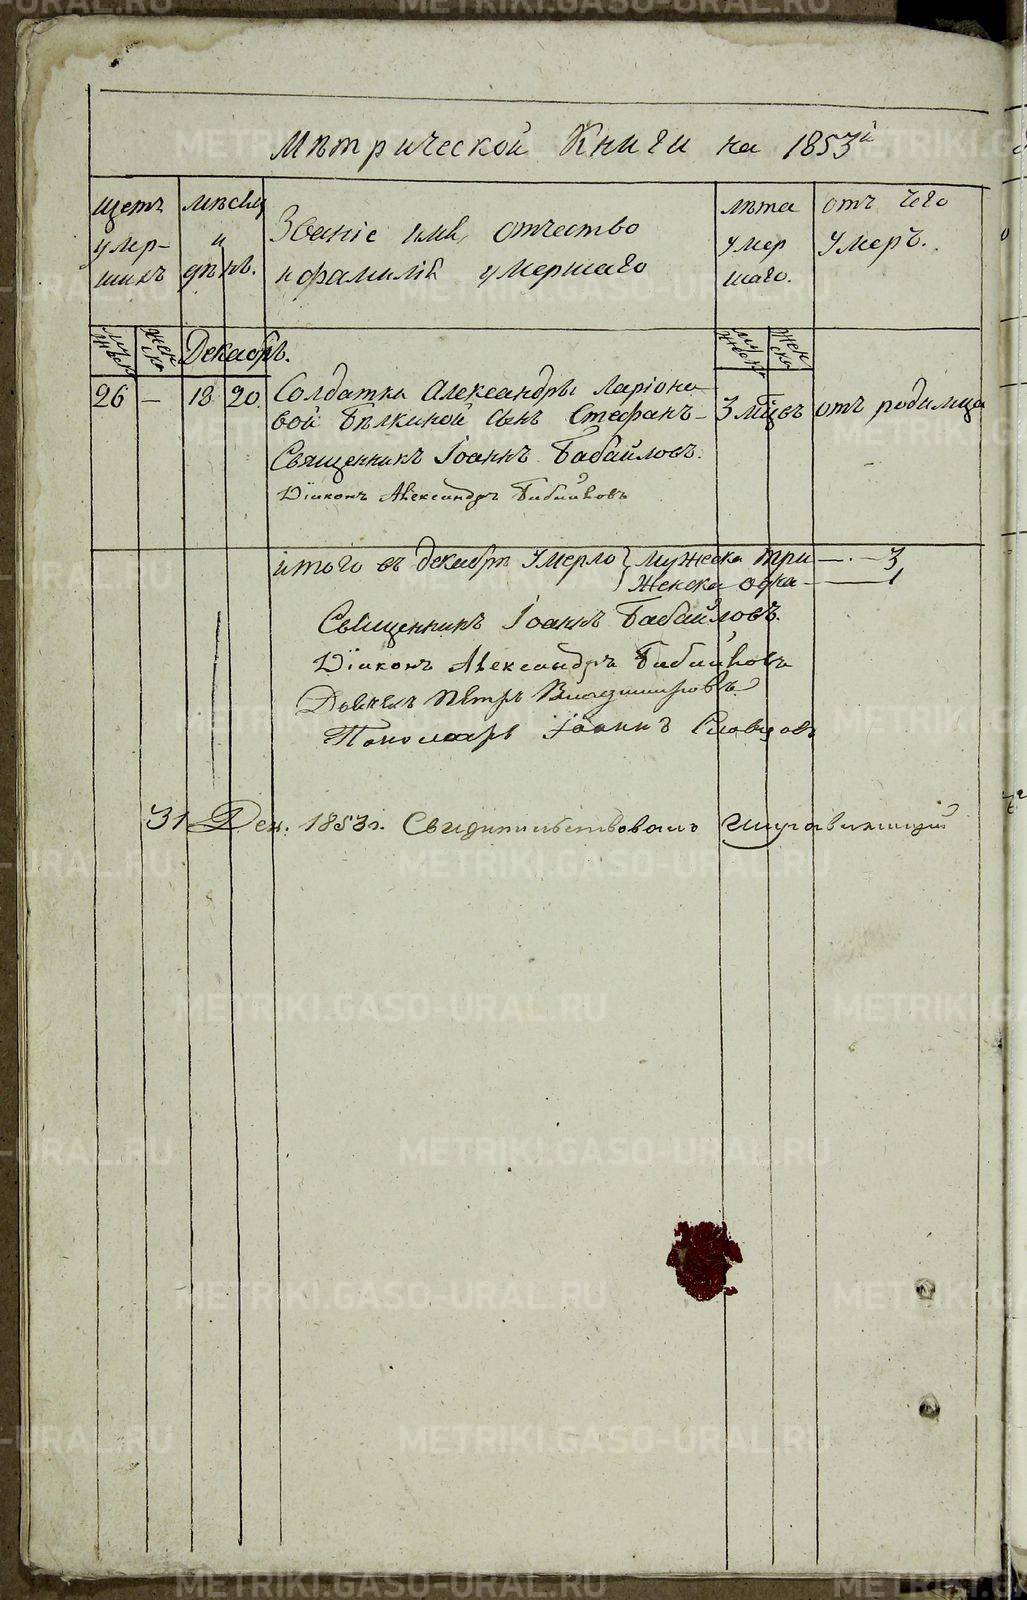 Мѣтрической Книги на 1853й
щетъ
умер-
шихъ
мѣсяц
и
дѣнь.
Званіе имя, отчество
и фамилія умершаго
лѣта
умер
шаго.
отъ чего
умеръ.
мужеск
женска
Декабрь.
мужеска
женска
26 — 18 20 Солдатка Александры Ларіоно-
вой Бѣлкиной сынъ Стефанъ- 3 мѣсяц отъ родимца
Священникъ Іоаннъ Бабайловъ.
Діаконъ Александръ Бибиковъ
итого въ декабрѣ умерло мужеска три — 3
женска одна — 1
Священникъ Іоаннъ Бабайловъ.
Діаконъ Александръ Бибиковъ
Дьячекъ Петръ Владимировъ.
Пономарь Іоаннъ Словцовъ
31 Дек. 1853г. Свидѣтельствовалъ
METRIKI.GASO-URAL.RU